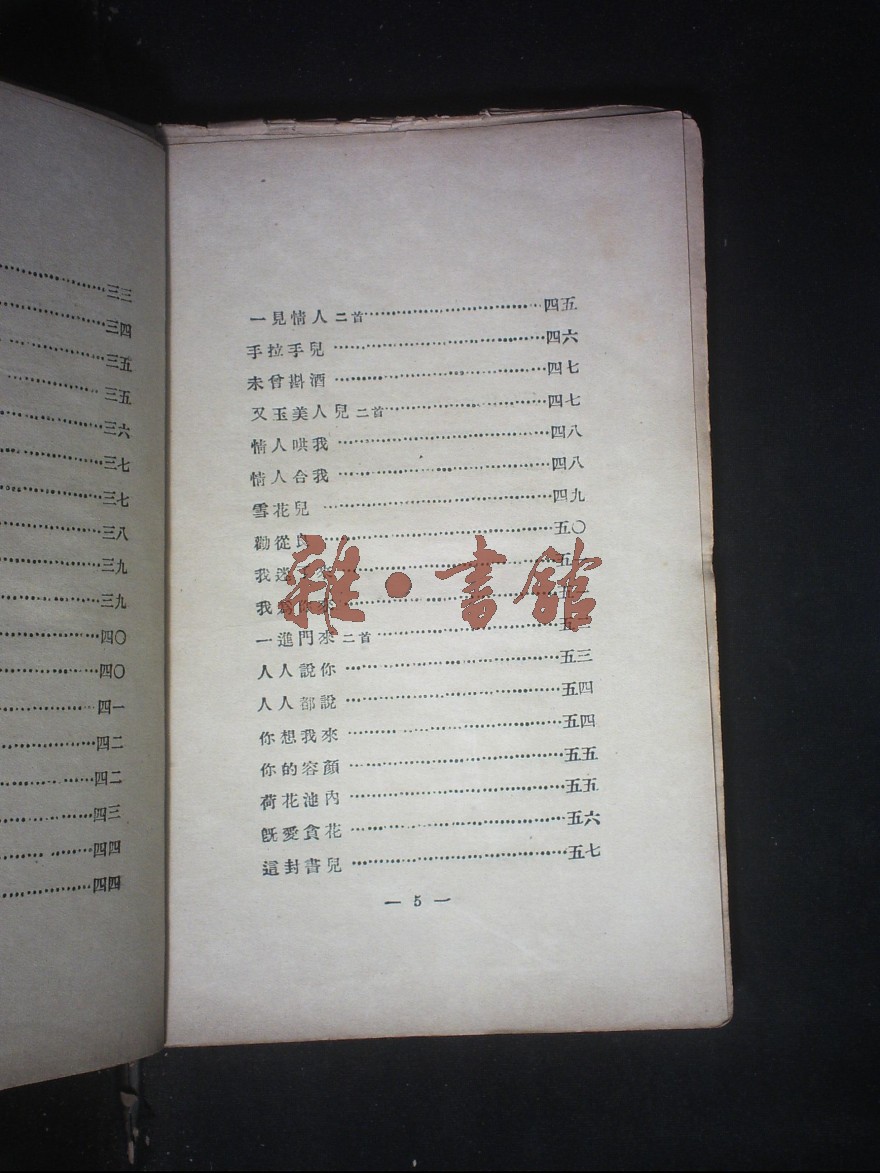 三三
三四
三五
三五
三六
三七
三七
三八
三九
三九
四〇
四〇
四一
四二
四二
四三
四四
四四
一見情人 二首……四五
手拉手兒……四六
未曾斟酒……四七
又玉美人兒 二首……四七
情人哄我……四八
情人合我……四八
雪花兒……四九
勸從良……五〇
我……五一
我……五
一進門來 二首……五二
人人說你……五三
人人都說……五四
你想我來……五四
你的容顏……五五
荷花池內……五五
旣愛貪花……五六
這封書兒……五七
— 5 —
雜·書館